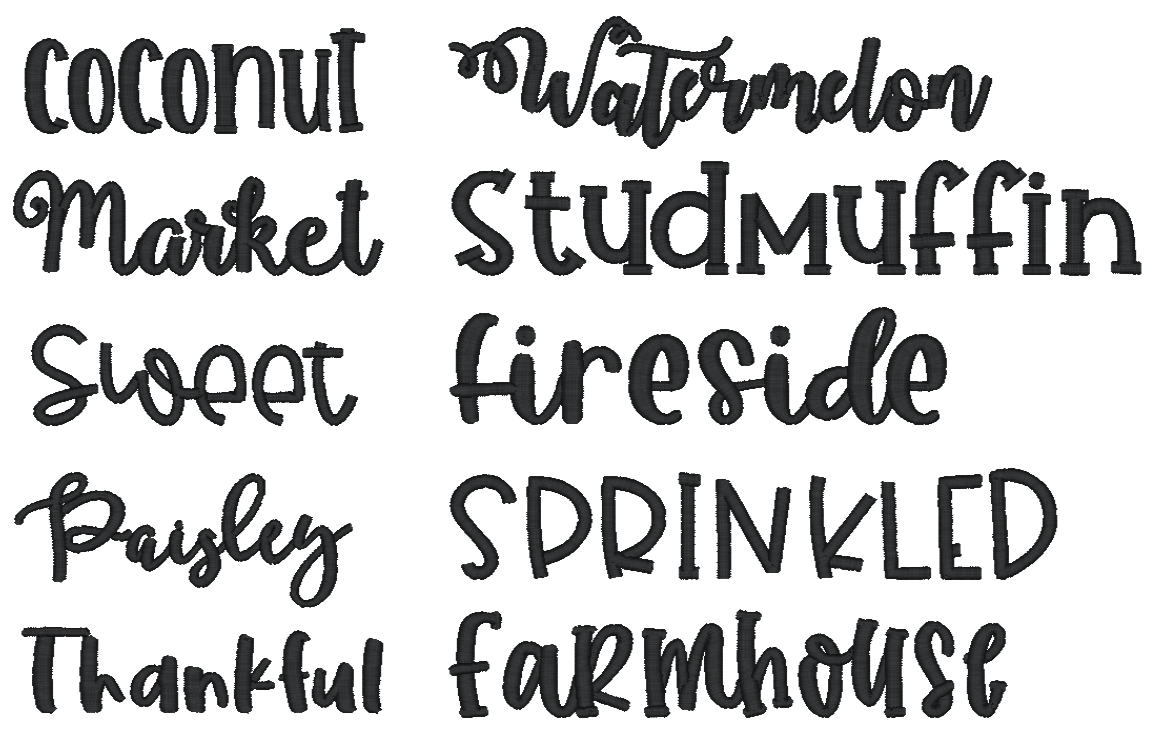 coconut
Watermelon
Market
Studmuffin
Sweet
fireside
Paisley
SPRINKLED
Thankful
farmhouse